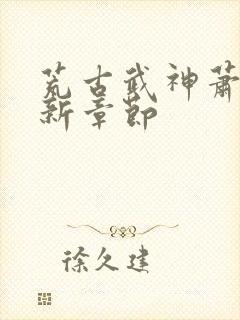 荒古武神萧
新章节
徐久建